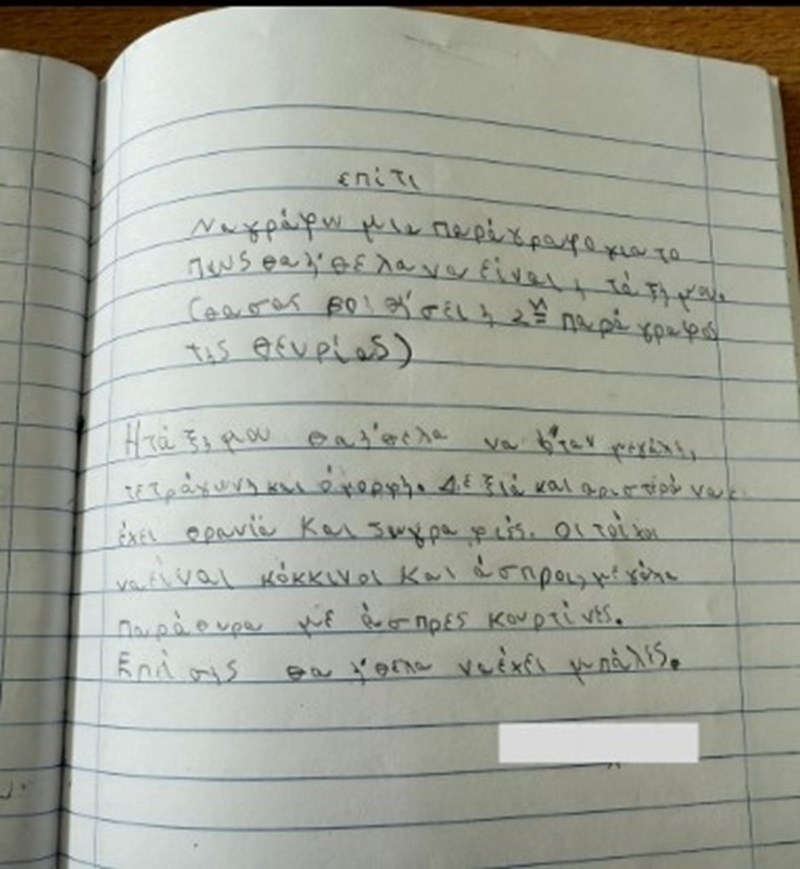 σπίτι
Να γράψω μια παράγραφο για το
πως θα ήθελα να είναι η τάξη μου.
(θα σας βοηθήσει η 2η παράγραφος
της θεωρίας)
Η τάξη μου θα ήθελα να ήταν μεγάλη,
τετράγωνη και όμορφη. Δεξιά και αριστερά να
έχει θρανία και ζωγραφιές. Οι τοίχοι
να είναι κόκκινοι και άσπροι, μεγάλα
παράθυρα με άσπρες κουρτίνες.
Επίσης θα ήθελα να έχει μπάλες.